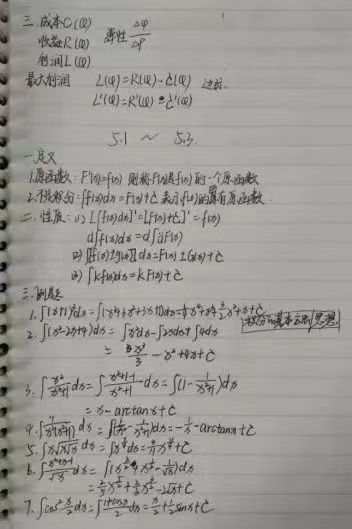 三. 成本C(Q)
收益R(Q) 弹性 ΔQ/ΔP
利润L(Q)
最大利润 L(Q)=R(Q)-C(Q)
L'(Q)=R'(Q)-C'(Q)
5.1 ~ 5.3
一. 定义
1. 原函数: F'(x)=f(x) 则称F(x)是f(x)的一个原函数
2. 不定积分: ∫f(x)dx=F(x)+C 表示f(x)的所有原函数
二. 性质: (1) [∫f(x)dx]'=[F(x)+C]'=f(x)
d∫f(x)dx=d∫dF(x)
(2) ∫[f(x)±g(x)]dx=F(x)±G(x)+C
(3) ∫kf(x)dx=kF(x)+C
三. 例题
1. ∫(x+1)³dx=∫(x³+3x²+3x+1)dx=¼x⁴+x³+3/2x²+x+C
2. ∫(x²-2x+4)dx=∫x²dx-∫2xdx+∫4dx
=x³/3-x²+4x+C
3. ∫x²/(x²+1)dx=∫(x²+1-1)/(x²+1)dx=∫(1-1/(x²+1))dx
=x-arctanx+C
4. ∫1/(x²(x²+1))dx=∫(1/x²-1/(x²+1))dx=-1/x-arctanx+C
5.
6.
7. ∫cos²(x/2)dx=∫(1+cosx)/2dx=x/2+½sinx+C